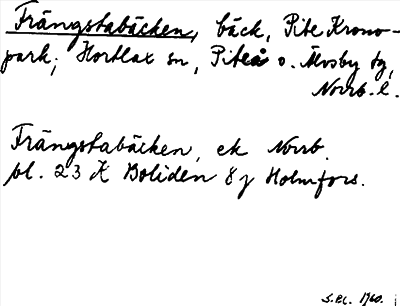 Trångstabäcken, bäck, Pite Krono-
park, Hortlax sn, Piteå o. Älvsby tg,
Norrb. l.
Trångstabäcken, ek Norrb.
bl. 23 K Boliden 8 j Holmfors.
1960.